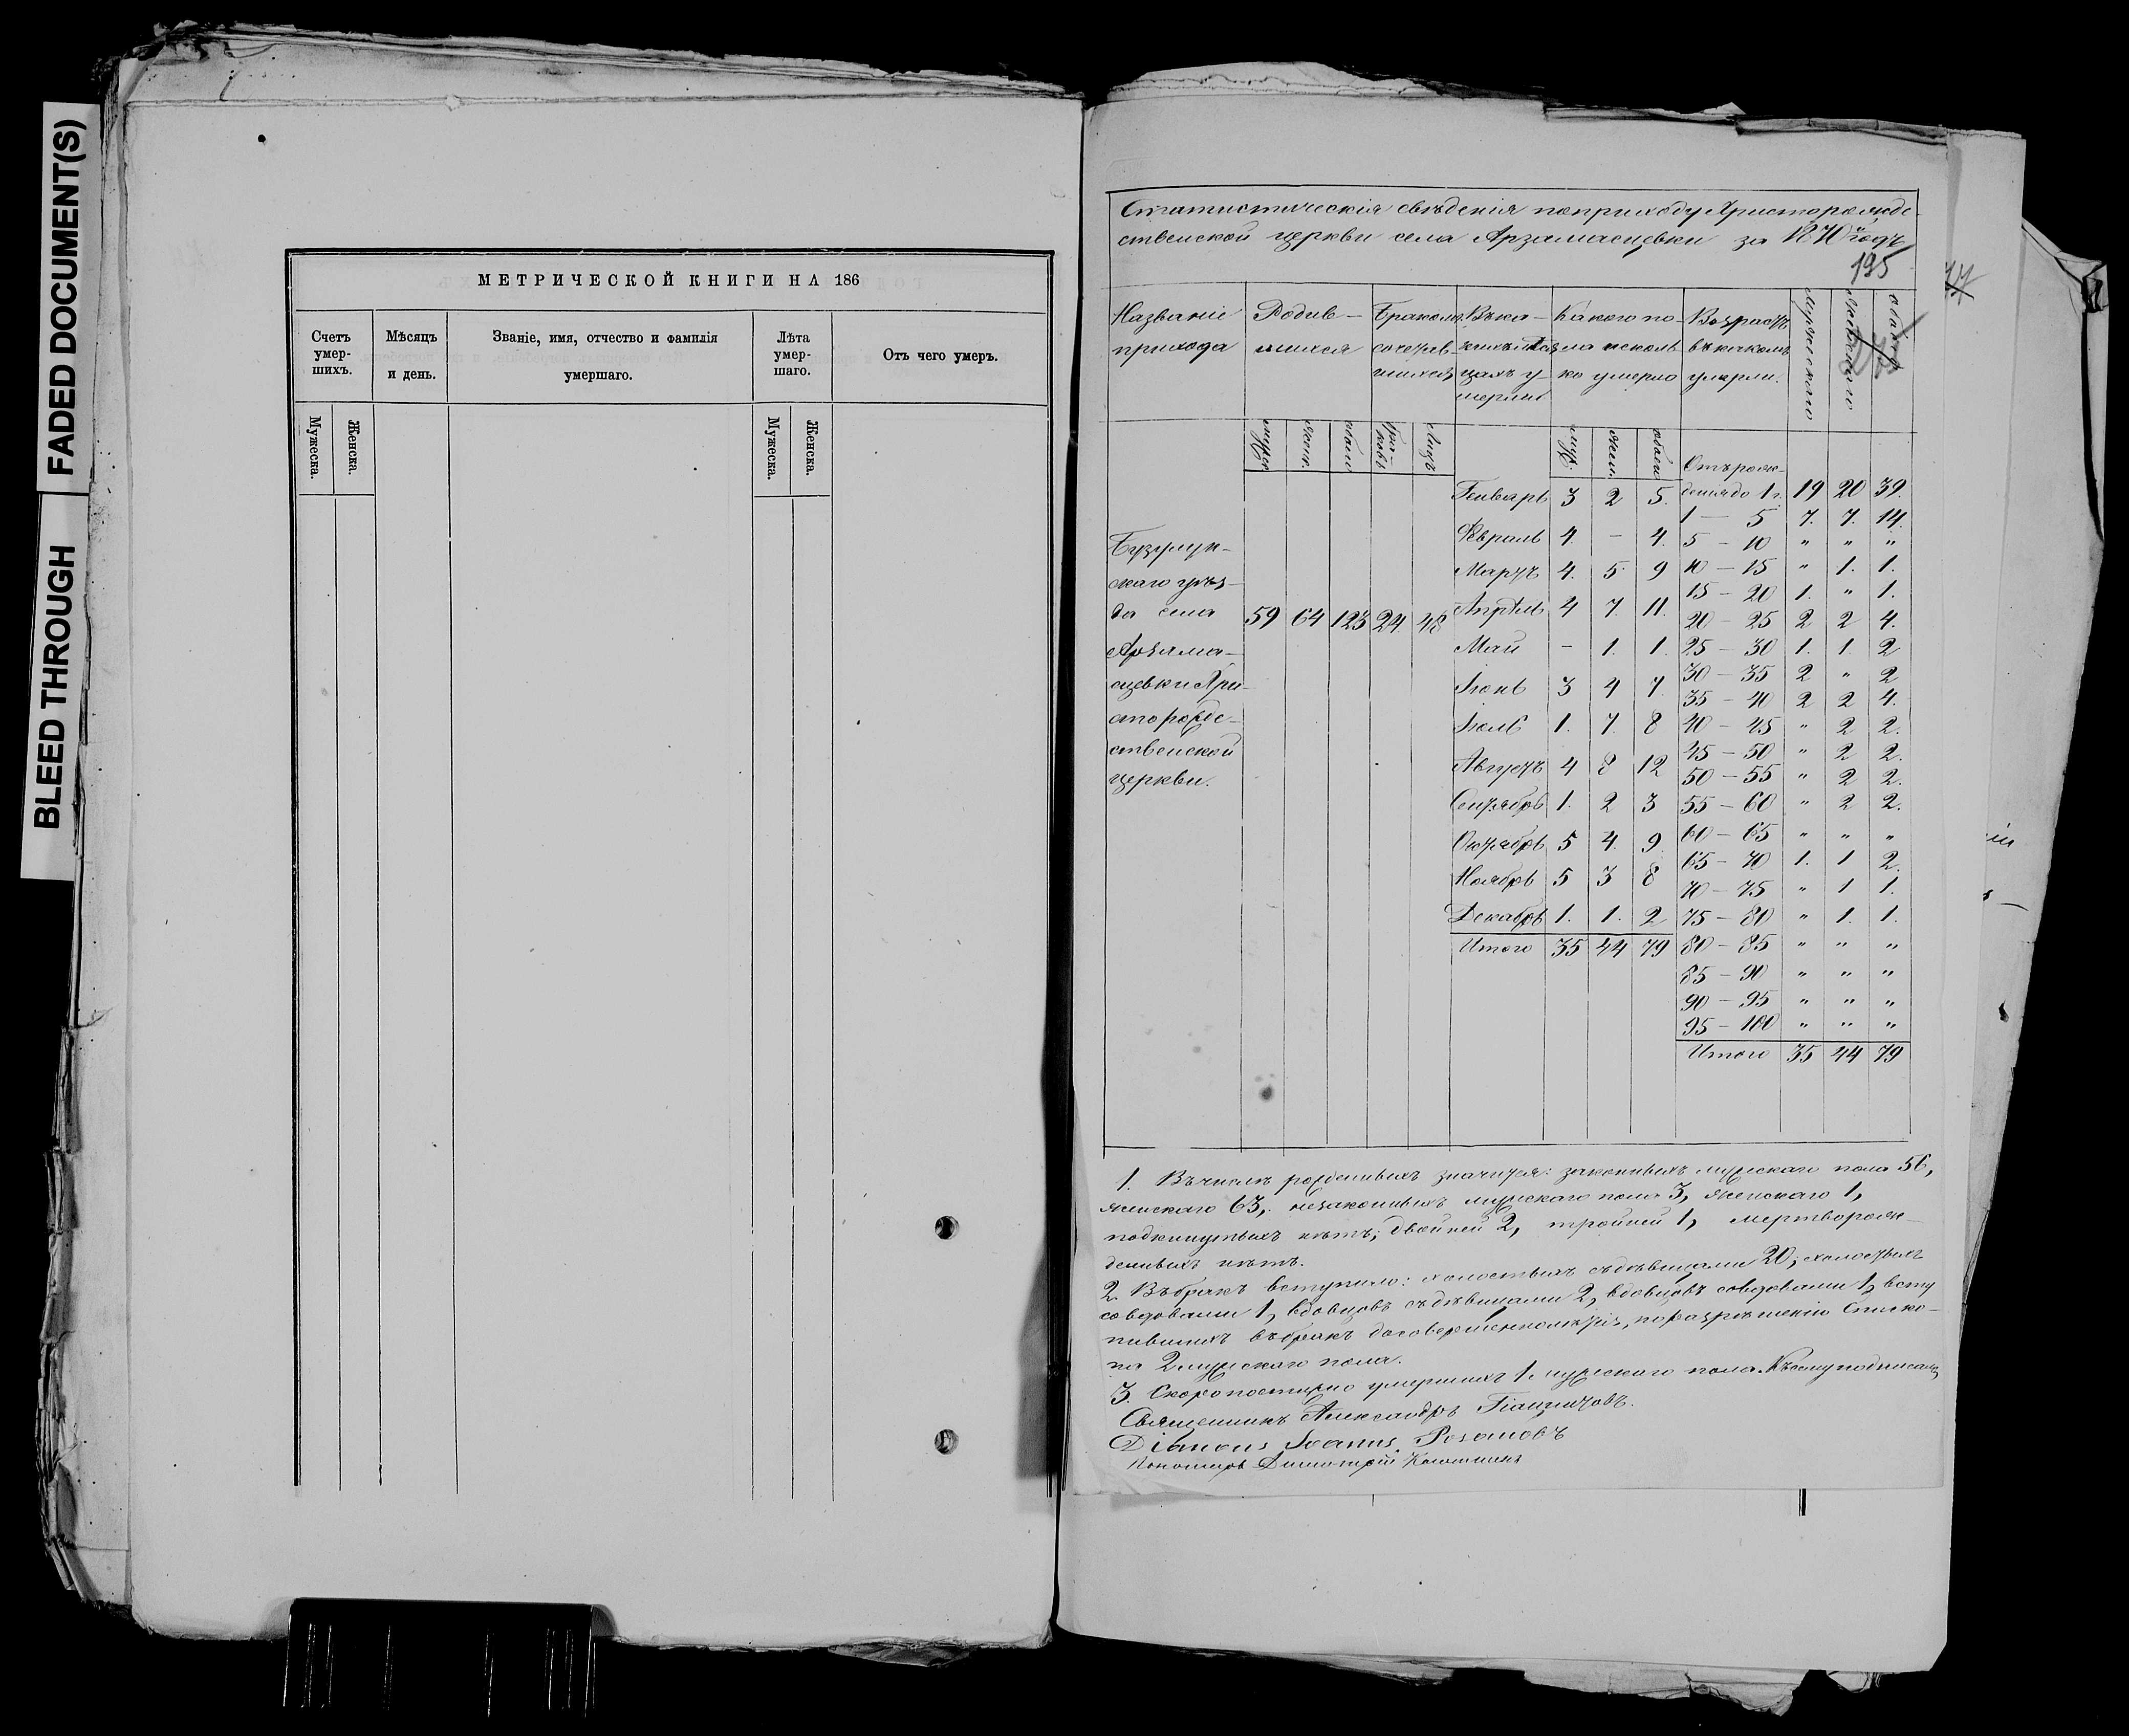 FADED DOCUMENT(S)
BLEED THROUGH
МЕТРИЧЕСКОЙ КНИГИ НА 186
Счетъ умер- шихъ.
Мѣсяцъ и день.
Званіе, имя, отчество и фамилія умершаго.
Лѣта умер- шаго.
Отъ чего умеръ.
Мужеска.
Женска.
Мужеска.
Женска.
Статистическія свѣденія поприходу Христорожде-
ственской церкви села Арзамасцевки за 1870й годъ
195
Названіе прихода
Родив- шихся
Бракомъ сочетав- шихся
Какого по- ла и сколь- ко умерло
Возрастъ въ какомъ умерли.
Мужескаго
Женскаго
обоего
Бузулук-
скаго уѣз-
да села
Арзама-
сцевки Хри-
сторожде-
ственской
церкви.
59 64 123 24 48
Генварь 3 2 5.
Февраль 4. - 4.
Мартъ 4. 5. 9
Апрѣль 4 7. 11.
Май - 1. 1.
Іюнь 3 4 7
Іюль 1. 7. 8
Августъ 4 8 12
Сентябрь 1. 2 3
Октябрь 5 4. 9
Ноябрь 5 3 8
Декабрь 1. 1. 2
Итого 35 44 79
Отъ рож-
денія до 1 г. 19 20 39.
1 — 5 7. 7. 14.
5 — 10 " " "
10 — 15 " 1. 1.
15 — 20 1. " 1.
20 — 25 2 2 4.
25 — 30 1. 1. 2
30 — 35 2 " 2
35 — 40 2 2 4.
40 — 45 " 2 2.
45 — 50 " 2 2.
50 — 55 " 2 2.
55 — 60 " 2 2.
60 — 65 " " "
65 — 70 1. 1 2
70 — 75 " 1 1.
75 — 80 " 1. 1.
80 — 85 " " "
85 — 90 " " "
90 — 95 " " "
95 — 100 " " "
Итого 35 44 79
1. Въ числѣ рожденныхъ значится: законныхъ мужскаго пола 56,
женскаго 63, незаконныхъ мужскаго пола 3, женскаго 1,
подкинутыхъ нѣтъ; двойней 2, тройней 1, мертворож-
денныхъ нѣтъ.
2. Въ бракъ вступило: холостыхъ съ дѣвицами 20; холостыхъ
со вдовами 1, вдовцовъ съ дѣвицами 2, вдовцовъ со вдовами 1, всту
пившихъ въ бракъ до совершеннолѣтія, по разрѣшенію Еписко-
па 2 мужскаго пола.
3. Скоропостижно умершихъ 1. мужскаго пола. Къ сему подписались
Священникъ Александръ
Іоаннъ Розановъ
Пономарь Димитрій